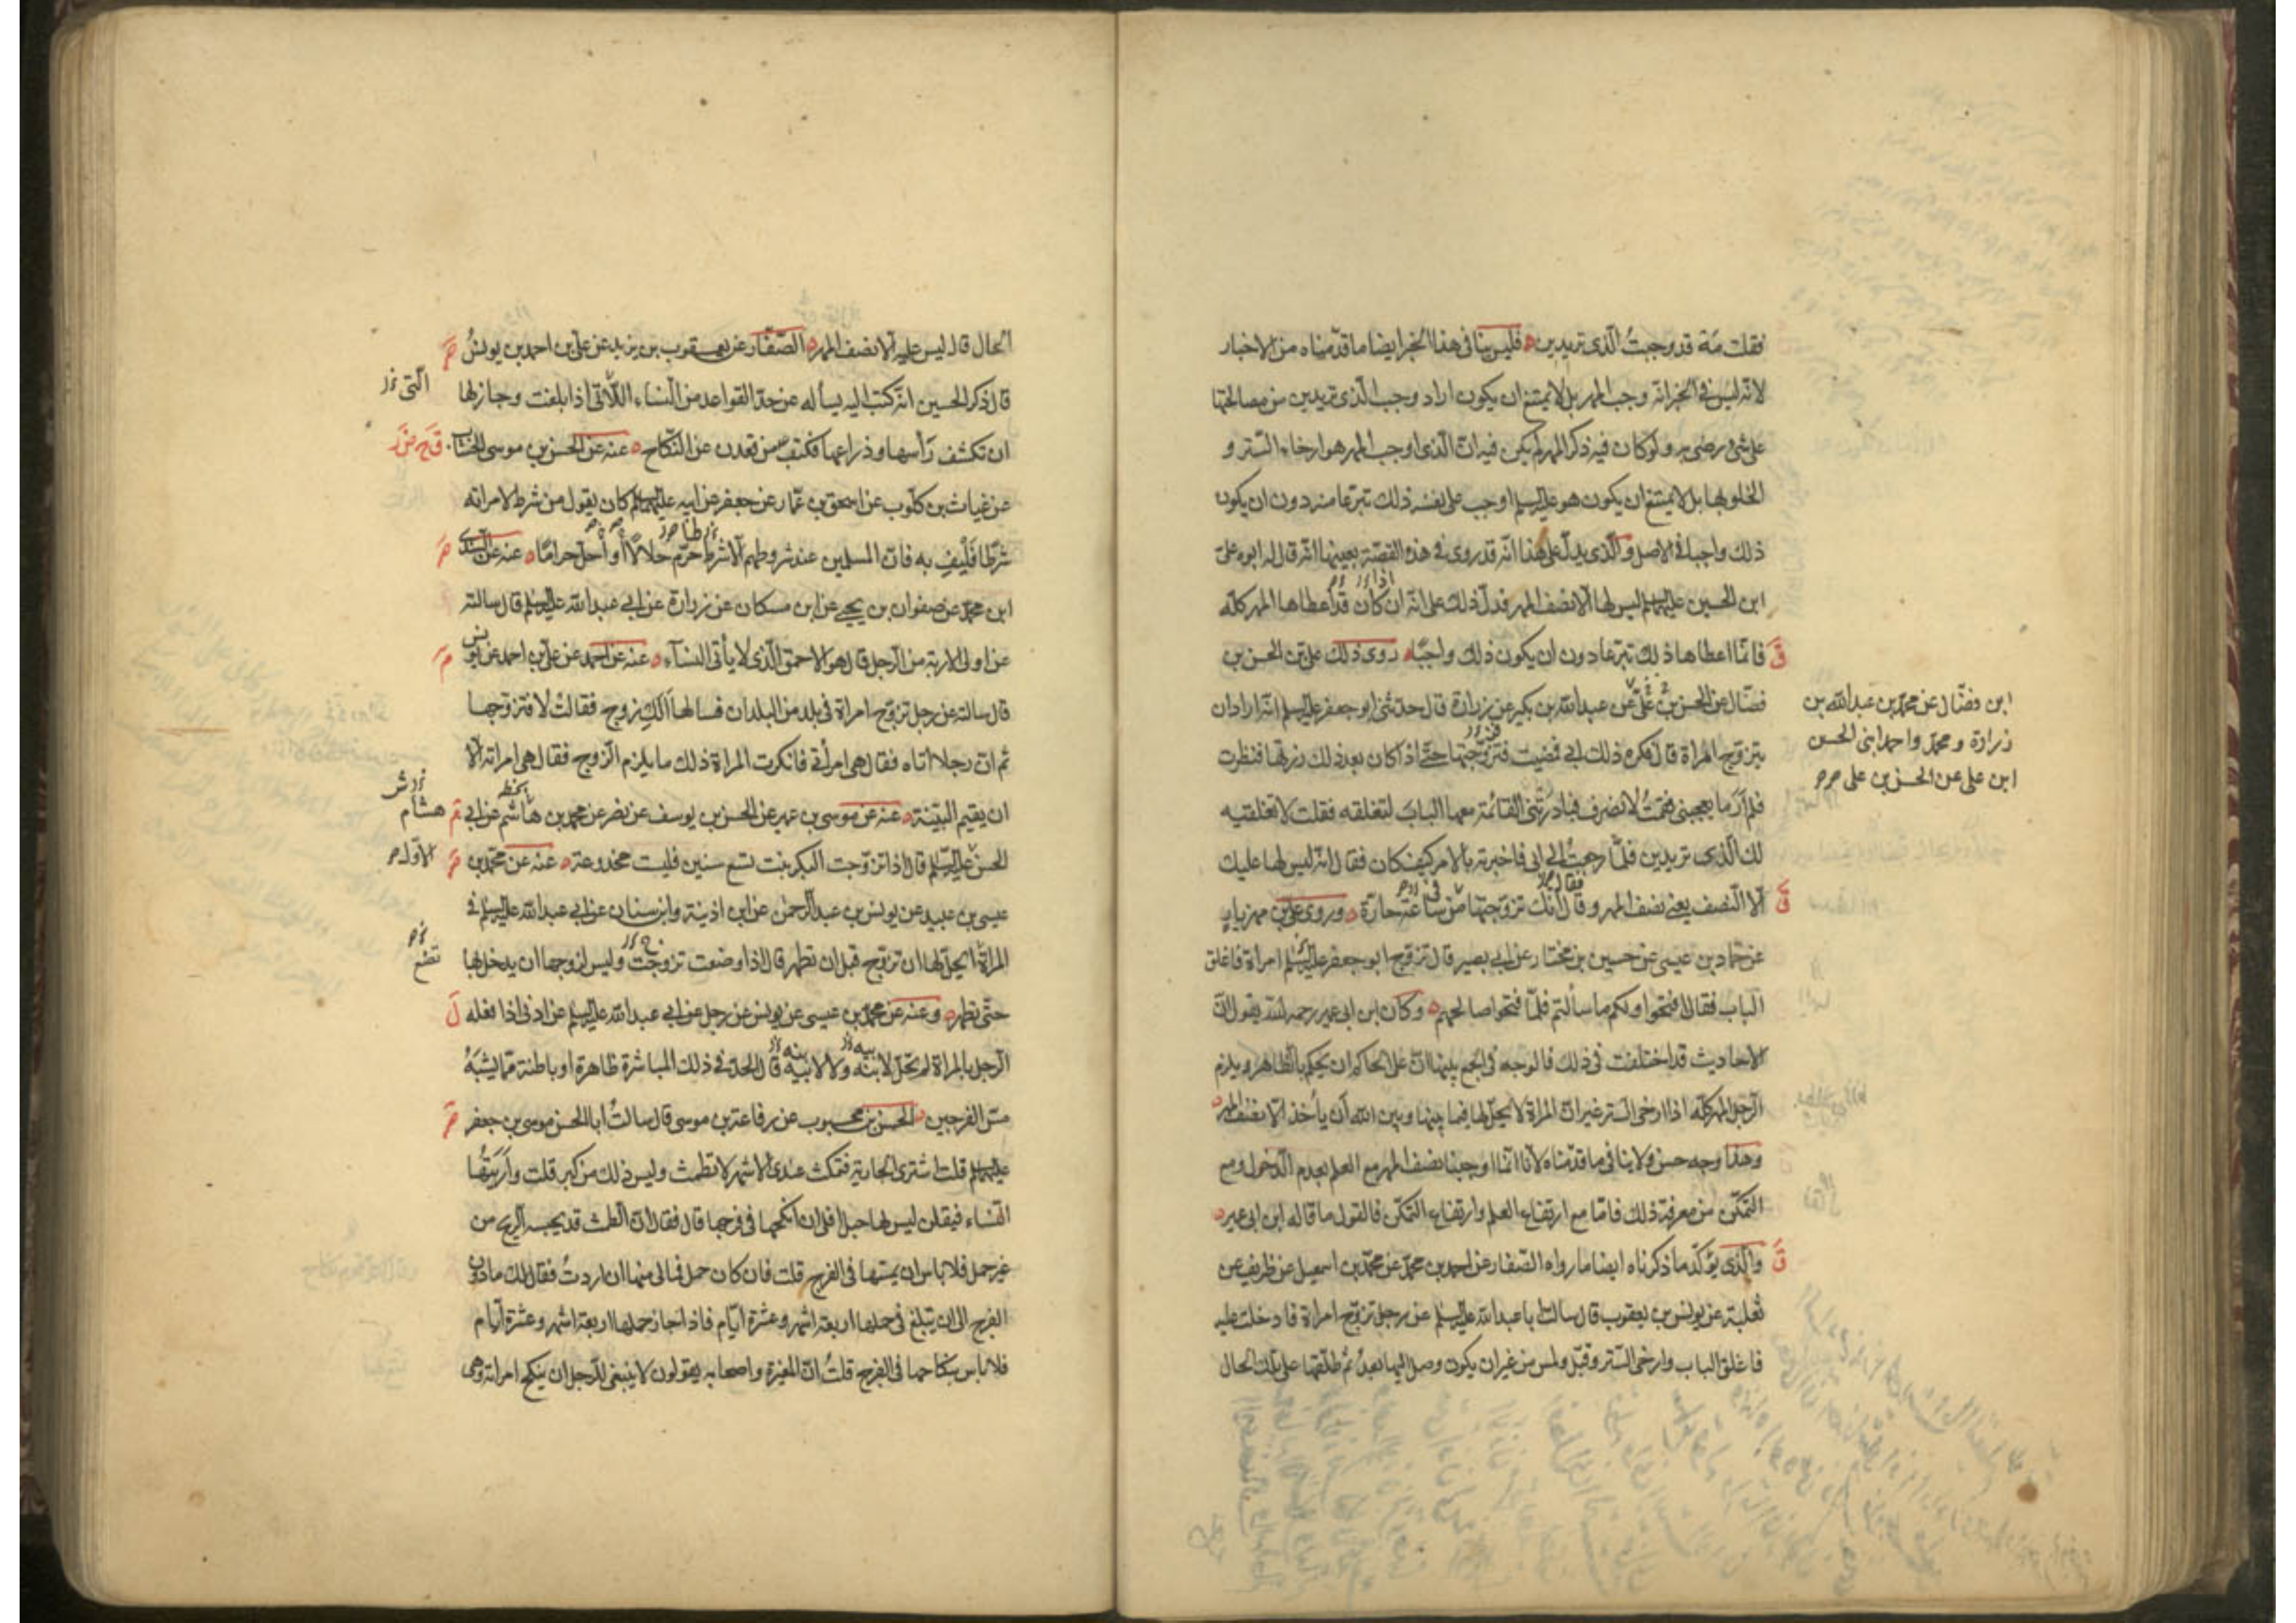 فقلت مَهْ قد وجبتُ الّذي تريدين فليس ينافي هذا الخبر ايضا ما قدّمناه من الاخبار
لانّه ليس في الخبر انّه وجب المهر بل لا يمتنع ان يكون اراد وجب الّذي تريدين من مصالحتها
على شيء رضى به ولو كان فيه ذكر المهر لم يكن فيه انّ الّذي اوجب المهر هو ارخاء السّتر و
الخلو بها بل لا يمتنع ان يكون هو عليه السلم اوجب على نفسه ذلك تبرّعا منه دون ان يكون
ذلك واجبا في الاصل والّذي يدلّ على هذا انّه قد روى في هذه القصّة بعينها انّه قال له ابوه علىّ
ابن الحسين عليهما السلم ليس لها الّا نصف المهر فدلّ ذلك على انّه ان كان قد اعطاها المهر كلّه
فانّما اعطاها ذلك تبرّعا دون ان يكون ذلك واجبًا روى ذلك على بن الحسن بن
فضّال عن الحسن بن علىّ عن عبد الله بن بكير عن زرارة قال حدّثني ابو جعفر عليه السلم انّه اراد ان
يتزوّج امراة قال فكره ذلك ابي فمضيت فتزوّجتها حتّى اذا كان بعد ذلك زرتها فنظرت
فلم ار ما يعجبني فقمتُ لانصرف فبادرتني القائمة معها الباب لتغلقه فقلت لا تغلقيه
لك الّذي تريدين فلمّا رجعتُ الى ابي فاخبرته بالامر كيف كان فقال انّه ليس لها عليك
الّا النّصف يعني نصف المهر وقال انّك تزوّجتها من ساعة حارّة وروى على بن مهزيار
عن حمّاد بن عيسى عن حسين بن مختار عن ابي بصير قال تزوّج ابو جعفر عليه السلم امراة فاغلق
الباب فقال افتحوا ولكم ما سألتم فلمّا فتحوا صالحهم وكان ابن ابي عمير رحمه الله يقول انّ
الاحاديث قد اختلفت في ذلك فالوجه في الجمع بينها انّ على الحاكم ان يحكم بالظّاهر ويلزم
الرّجل المهر كلّه اذا ارخى السّتر غير انّ المراة لا يحلّ لها فيما بينها وبين الله ان يأخذ الّا نصف المهر
وهذا وجه حسن ولا ينافي ما قدّمناه لانّا انّما اوجبنا نصف المهر مع العلم بعدم الدّخول ومع
التمكّن من معرفة ذلك فامّا مع ارتفاع العلم وارتفاع التمكّن فالقول ما قاله ابن ابي عمير
والّذي يؤكّد ما ذكرناه ايضا ما رواه الصّفار عن احمد بن محمّد عن محمّد بن اسمعيل عن ظريف عن
ثعلبة عن يونس بن يعقوب قال سالت ابا عبد الله عليه السلم عن رجل تزوّج امراة فادخلت عليه
فاغلق الباب وارخى السّتر وقبّل ولمس من غير ان يكون وصل اليها بعدُ ثمّ طلّقها على تلك الحال
ابن فضّال عن محمّد بن عبد الله بن
زرارة ومحمّد واحمد ابني الحسن
ابن على عن الحسن بن على
الحال قال ليس عليه الّا نصف المهر الصّفّار عن يعقوب بن يزيد عن على بن احمد بن يونس
قال ذكر الحسين انّه كتب اليه يسأله عن حدّ القواعد من النّساء اللّاتي اذا بلغت وجاز لها
الّتي
ان تكشف رأسها وذراعها فكتب من قعدن عن النّكاح عنه عن الحسن بن موسى الخشّاب
عن غياث بن كلّوب عن اسحق بن عمّار عن جعفر عن ابيه عليهما السلم كان يقول من شرط لامراته
شرطا فليف به فانّ المسلمين عند شروطهم الّا شرط حرّم حلالًا أو أحلّ حرامًا عنه عن السّندى
ابن محمّد عن صفوان بن يحيى عن ابن مسكان عن زرارة عن ابي عبد الله عليه السلم قال سالته
عن اولى الاربة من الرّجل قال هو الاحمق الّذي لا يأتي النّساء عنه عن احمد عن على بن احمد عن يونس
قال سالته عن رجل تزوّج امراة في بلد من البلدان فسالها ألكِ زوج فقالت لا فتزوّجها
ثم انّ رجلا اتاه فقال هي امرأتي فانكرت المراة ذلك ما يلزم الزّوج فقال هي امراته الّا
ان يقيم البيّنة عنه عن موسى بن عمير عن الحسن بن يوسف عن نصر عن محمد بن هاشم عن ابي
هشام
الحسن عليه السلم قال اذا تزوّجت البكر بنت تسع سنين فليست مخدوعة عنه عن محمّد بن
الاوّل
عيسى بن عبيد عن يونس بن عبد الرّحمن عن ابن اذينة وابن سنان عن ابي عبد الله عليه السلم في
المراة ايحلّ لها ان تزوّج قبل ان تطهر قال اذا وضعت تزوجت وليس لزوجها ان يدخل بها
تضع
حتّى تطهر وعنه عن محمّد بن عيسى عن يونس عن رجل عن ابي عبد الله عليه السلم عن ادنى اذا فعله
الرّجل بالمراة لم تحلّ لابنه ولا لابيه قال الحدّ في ذلك المباشرة ظاهرة او باطنة ممّا يشبه
مسّ الفرجين الحسن بن محبوب عن رفاعة بن موسى قال سالتُ ابا الحسن موسى بن جعفر
عليهما السلم قلت اشترى الجارية فتمكث عندي الاشهر لا تطمث وليس ذلك من كبر قلت وأرَيتُها
النّساء فيقلن ليس بها حبل افلى ان انكحها في فرجها قال فقال انّ الطّمث قد يحبسه الرّيح من
غير حمل فلا باس ان يمسّها في الفرج قلت فان كان حمل فما لى منها ان اردتُ فقال لك ما دون
الفرج الى ان يتبلغ في حملها اربعة اشهر وعشرة ايّام فاذا جاز حملها اربعة اشهر وعشرة ايّام
فلا باس بنكاحها في الفرج قلتُ انّ المغيرة واصحابه يقولون لا ينبغي للرّجل ان ينكح امراته وهى